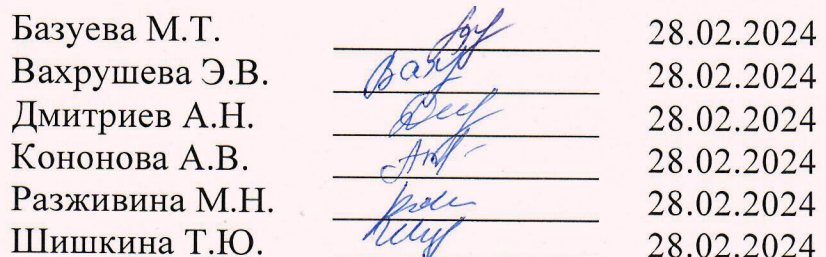 Базуева М.Т. 28.02.2024
Вахрушева Э.В. 28.02.2024
Дмитриев А.Н. 28.02.2024
Кононова А.В. 28.02.2024
Разживина М.Н. 28.02.2024
Шишкина Т.Ю. 28.02.2024